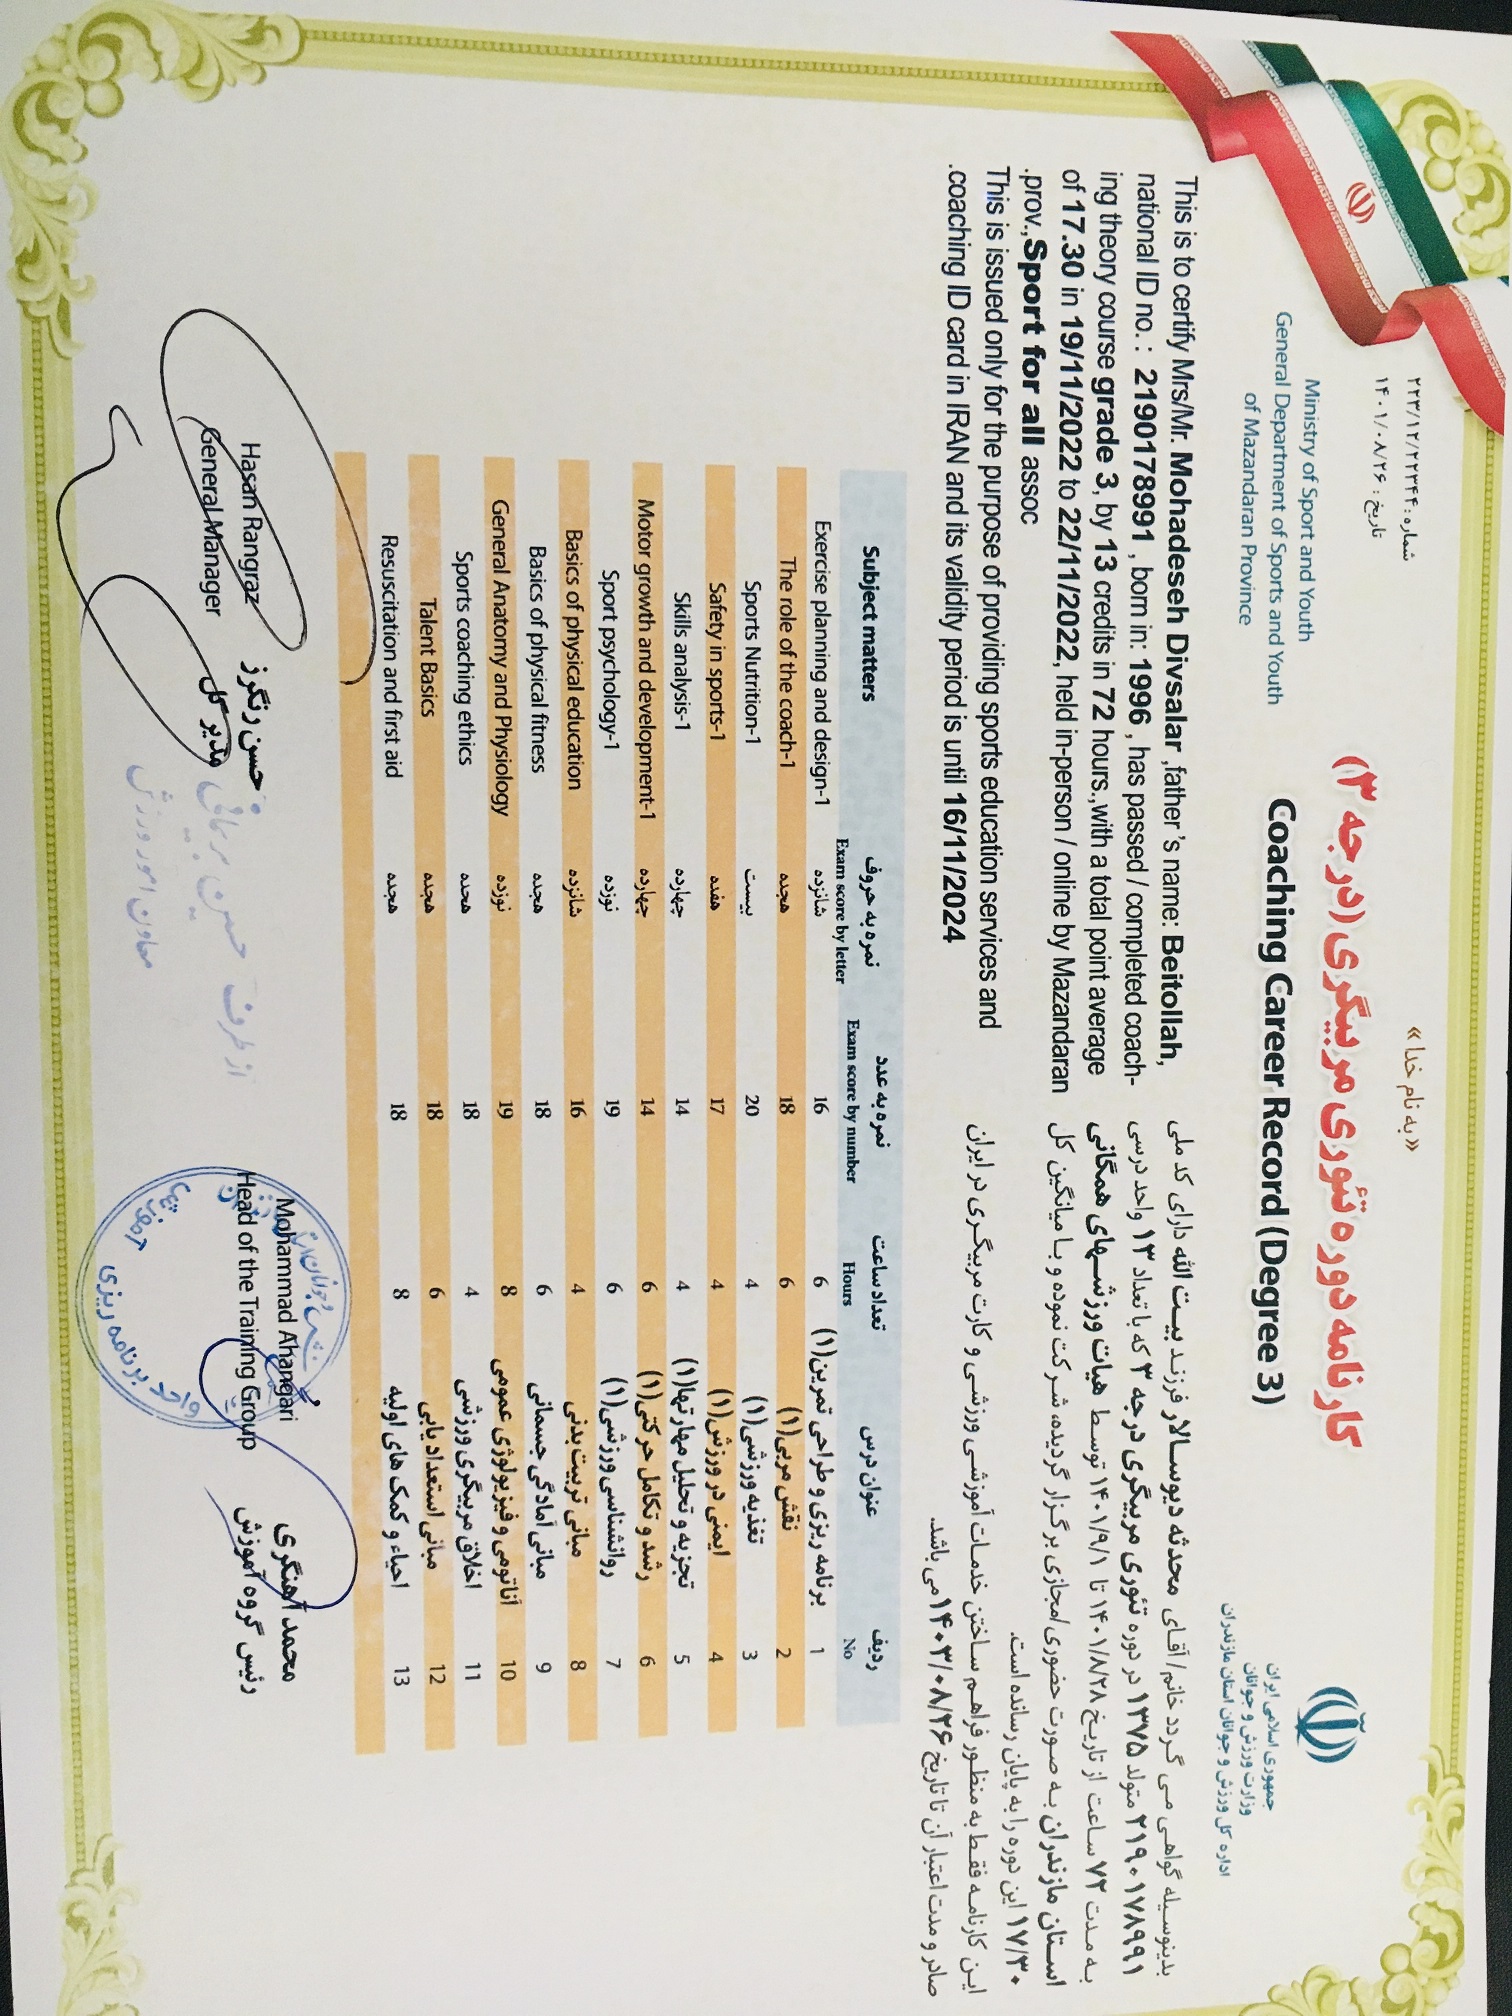 «به نام خدا»
شماره: ۲۲۳/۱۲/۲۲۳۴۴
تاریخ: ۱۴۰۱/۰۸/۲۶
Ministry of Sport and Youth
General Department of Sports and Youth
of Mazandaran Province
کارنامه دوره تئوری مربیگری (درجه ۳)
Coaching Career Record (Degree 3)
جمهوری اسلامی ایران
وزارت ورزش و جوانان
اداره کل ورزش و جوانان استان مازندران
This is to certify Mrs/Mr. Mohadeseh Divsalar ,father's name: Beitollah,
national ID no. : 2190178991 , born in: 1996 , has passed / completed coach-
ing theory course grade 3, by 13 credits in 72 hours.,with a total point average
of 17.30 in 19/11/2022 to 22/11/2022, held in-person / online by Mazandaran
.prov.,Sport for all assoc
This is issued only for the purpose of providing sports education services and
.coaching ID card in IRAN and its validity period is until 16/11/2024
بدینوسیله گواهی می گردد خانم/ آقای محدثه دیوسالار فرزند بیت الله دارای کد ملی
۲۱۹۰۱۷۸۹۹۱ متولد ۱۳۷۵ در دوره تئوری مربیگری درجه ۳ که با تعداد ۱۳ واحد درسی
به مدت ۷۲ ساعت از تاریخ ۱۴۰۱/۸/۲۸ تا ۱۴۰۱/۹/۱ توسط هیات ورزشهای همگانی
استان مازندران به صورت حضوری/مجازی برگزار گردیده، شرکت نموده و با میانگین کل
۱۷/۳۰ این دوره را به پایان رسانده است.
این کارنامه فقط به منظور فراهم ساختن خدمات آموزشی ورزشی و کارت مربیگری در ایران
صادر و مدت اعتبار آن تا تاریخ ۱۴۰۳/۰۸/۲۶ می باشد.
Subject matters نمره به حروف نمره به عدد تعداد ساعت عنوان درس ردیف
Exam score by letter Exam score by number Hours No
Exercise planning and design-1 شانزده 16 6 برنامه ریزی و طراحی تمرین(۱) 1
The role of the coach-1 هجده 18 6 نقش مربی(۱) 2
Sports Nutrition-1 بیست 20 4 تغذیه ورزشی(۱) 3
Safety in sports-1 هفده 17 4 ایمنی در ورزش(۱) 4
Skills analysis-1 چهارده 14 4 تجزیه و تحلیل مهارتها(۱) 5
Motor growth and development-1 چهارده 14 6 رشد و تکامل حرکتی(۱) 6
Sport psychology-1 نوزده 19 6 روانشناسی ورزشی(۱) 7
Basics of physical education شانزده 16 4 مبانی تربیت بدنی 8
Basics of physical fitness هجده 18 6 مبانی آمادگی جسمانی 9
General Anatomy and Physiology نوزده 19 8 آناتومی و فیزیولوژی عمومی 10
Sports coaching ethics هجده 18 4 اخلاق مربیگری ورزشی 11
Talent Basics هجده 18 6 مبانی استعداد یابی 12
Resuscitation and first aid هجده 18 8 احیاء و کمک های اولیه 13
Hasan Rangraz
General Manager
حسن رنگرز
مدیر کل
از طرف حسین
معاون امور ورزش
Mohammad Ahangari
Head of the Training Group
محمد آهنگری
رئیس گروه آموزش
واحد برنامه ریزی